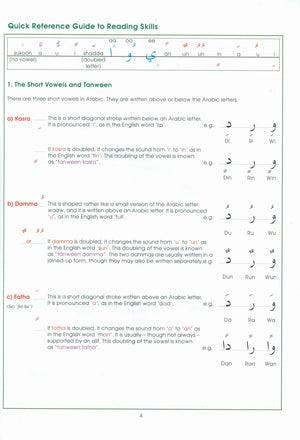 Quick Reference Guide to Reading Skills
aa oo ee
ا و ي
sukoon a u i shadda an un un in a u i
(no vowel) (doubled
letter)
1. The Short Vowels and Tanween
There are three short vowels in Arabic. They are written above or below the Arabic letters.
a) Kasra This is a short diagonal stroke written below an Arabic letter.
It is pronounced "i", as in the English word "lip".
e.g.
Di Ri Wi
If kasra is doubled, it changes the sound from "i" to "in" as in
the English word "tin". This doubling of the vowel is known
as "tanween kasra".
e.g.
Din Rin Win
b) Damma This is shaped rather like a small version of the Arabic letter
waaw, and it is written above an Arabic letter. It is pronounced
"u", as in the English word "full".
e.g.
Du Ru Wu
or If damma is doubled, it changes the sound from "u" to "un" as
in the English word "run". This doubling of the vowel is known
as "tanween damma". The two dammas are usually written in a
joined-up form, though they may also be written separately.
e.g.
Dun Run Wun
c) Fatha This is a short diagonal stroke written above an Arabic letter.
It is pronounced "a", as in the English word "dad".
e.g.
Da Ra Wa
If fatha is doubled, it changes the sound from "a" to "an" as
in the English word "man". It is usually – though not always –
supported by an alif. This doubling of the vowel is known
as "tanween fatha".
e.g.
Dan Ran Wan
4